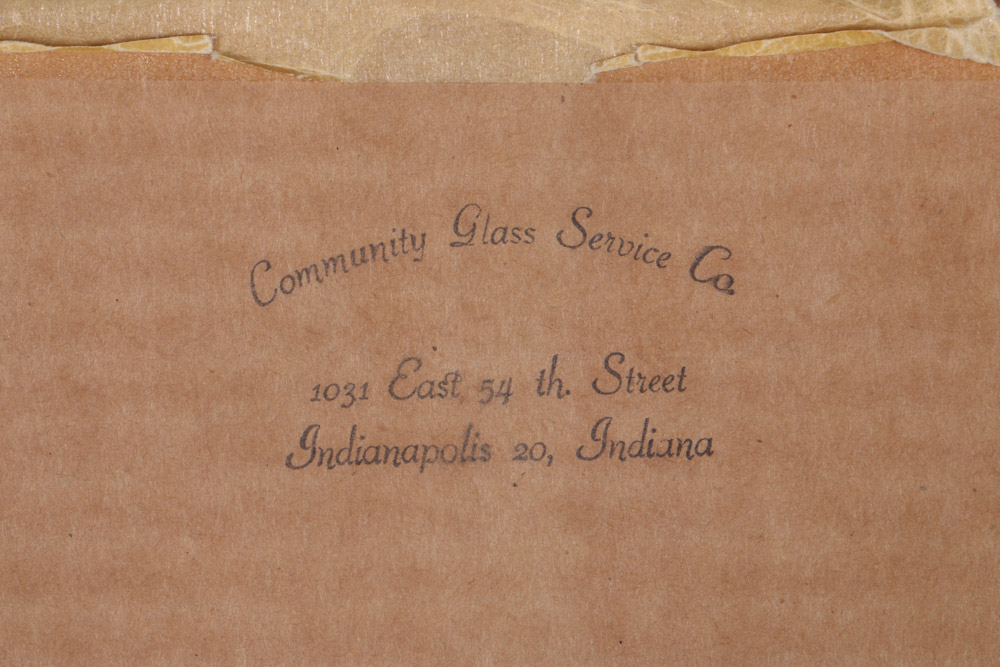 Community Glass Service Co.
1031 East 54 th. Street
Indianapolis 20, Indiana